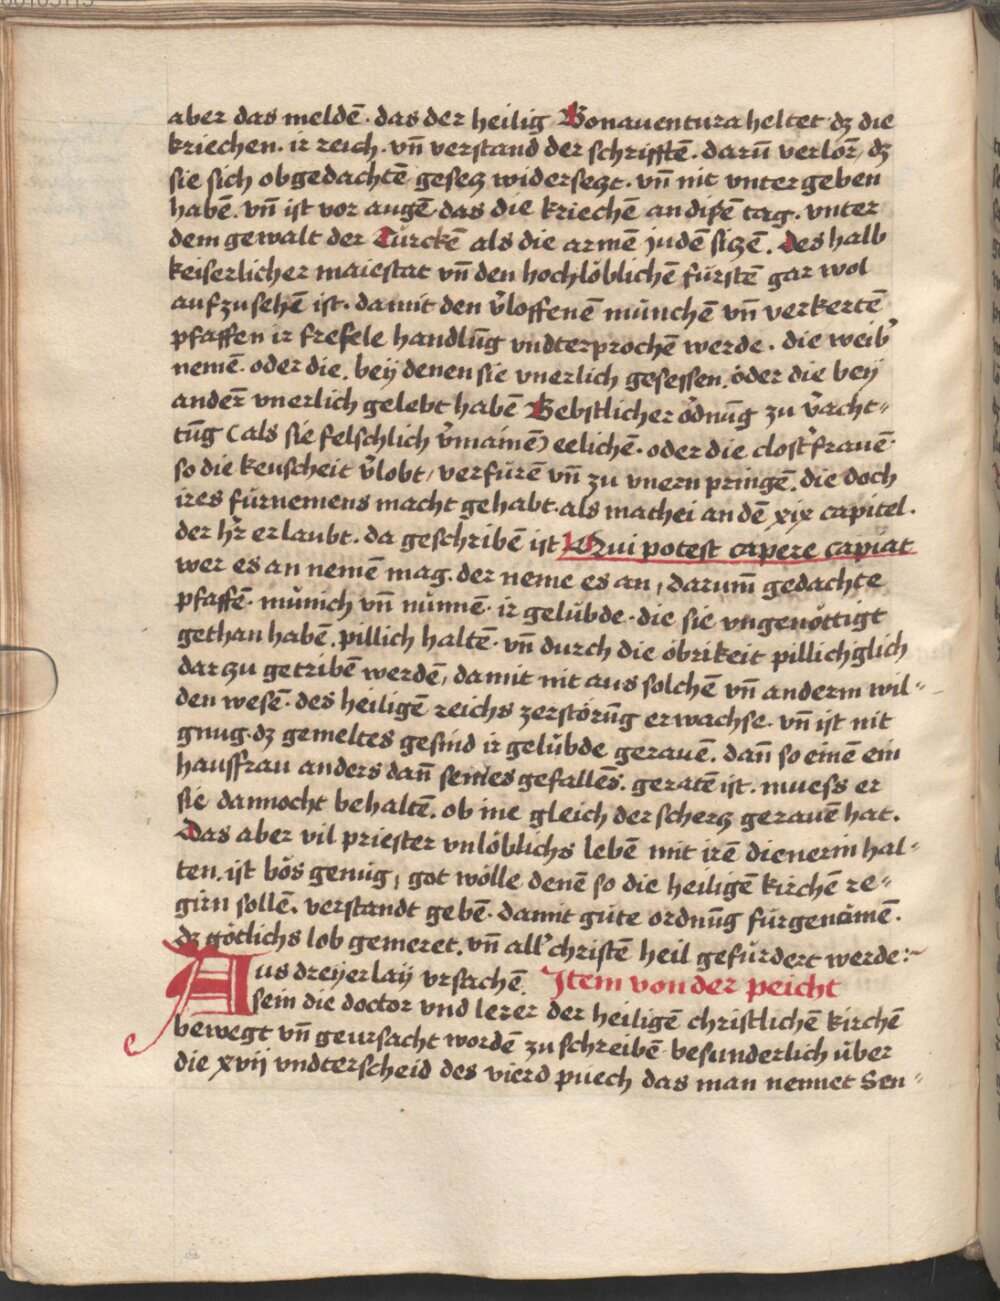 aber das meldē · das der heilig Bonauentura heltet dz die
kriechen · ir reich · vn̄ verstand der schrifftē · darū verlorn̄, dz
sie sich obgedachtē gesecz widerseczt · vn̄ nit vntergeben
habē · vn̄ ist vor augē · das die kriechē an disē tag · vnter
dem gewalt der Türckē als die armē judē siczē . des halb
keiserlicher maiestat vn̄ den hochlöblichē fürstē gar wol
aufzusehē ist · damit den v̾loffenē münchē vn̄ verkertē
pfaffen ir frefele handlūg vndterprochē werde · die weib̾
nemē · oder die . beÿ denen sie vnerlich gesessen . öder die beÿ
anderē vnerlich gelebt habē Bebstlicher ödnūg zu v̾acht⸗
tūg (als sie felschlich v̾mainē) eelichē · oder die clost̾frauē ·
so die keuscheit v̾lobt / verfürē vn̄ zu vnern pringē . die doch
ires fürnemens macht gehabt · als mathei an dē xix capitel .
der hr̄ erlaubt . da geschribē ist Qui potest capere capiat
wer es an nemē mag . der neme es an / darum̄ gedachte
pfaffē · münich vn̄ nūnnē · ir gelübde · die sie vngenöttigt
gethan habē . pillich haltē · vn̄ durch die öbrikeit pillichiglich
darzu getribē werdē / damit nit aus solchē vn̄ anderm wil⸗
den wesē · des heiligē reichs zerstörūg erwachse · vn̄ ist nit
gnug · dz gemeltes gesind ir gelübde gerauē . dan̄ so einē ein
hausfrau anders dan̄ seines gefallēs . geratē ist . muess er
sie dannocht behaltē . ob ine gleich der schercz gerauē hat .
Das aber vil priester vnlöblichs lebē mit irē dienerin hal⸗
ten . ist bös genüg / got wölle denē so die heiligē kirchē re⸗
girn sollē . verstandt gebē · damit güte ordnūg fürgenūmē ·
dz götlichs lob gemeret . vn̄ all̾ christē heil gefürdert werde :~
Aus dreÿerlaÿ vrsachē Item von der peicht
sein die doctor vnd lerer der heiligē christlichē kirchē
bewegt vn̄ geursacht wordē zu schreibē besunderlich über
die xvij vndterscheid des vierd puech das man nennet Sen⸗